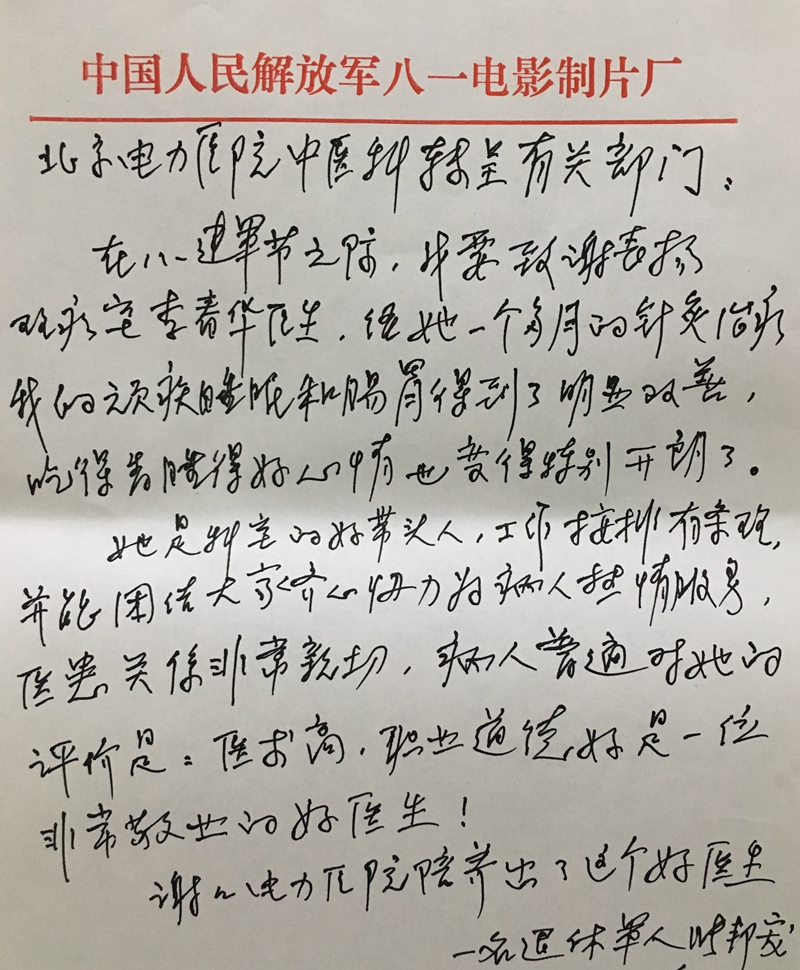 中国人民解放军八一电影制片厂
北京电力医院中医科转呈有关部门：
在八一建军节之际，我要致谢表扬
理疗室李春华医生，经她一个多月的针灸治疗
我的顽疾睡眠和肠胃得到了明显改善，
吃得香睡得好心情也变得特别开朗了。
她是科室的好带头人，工作安排有条理，
并能团结大家齐心协力为病人热情服务，
医患关係非常亲切，病人普遍对她的
评价是：医术高，职业道德好是一位
非常敬业的好医生！
谢谢电力医院培养出了这个好医生
一名退休军人